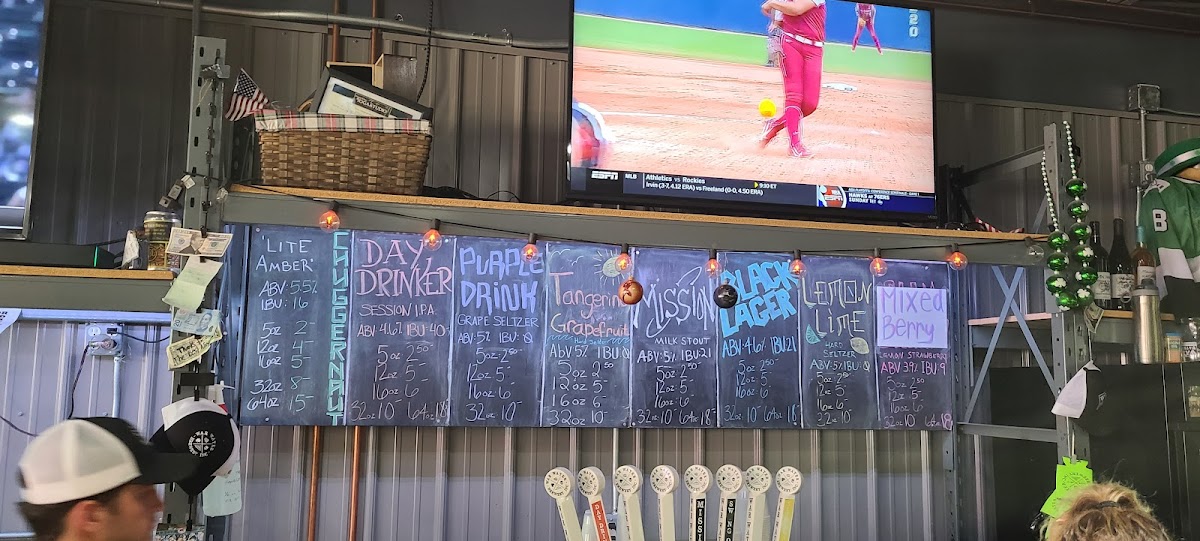 ESPN
MLB
Athletics vs Rockies
9:10 ET
Irvin (3-7, 4.12 ERA) vs Freeland (0-0, 4.50 ERA)
HAWKS at 76ERS
ESPN
'LITE
AMBER'
ABV: 5.5%
IBU: 16
5oz 2-
12oz 4-
16oz 5-
32oz 8-
64oz 15-
CHUGGERNAUT
DAY
DRINKER
SESSION IPA
ABV 4.6% IBU 40
5oz 2.50
12oz 5-
16oz 6-
32oz 10- 64oz 18-
PURPLE
DRINK
GRAPE SELTZER
ABV 5% IBU 0
5oz 2.50
12oz 5-
16oz 6-
32oz 10-
Tangerine
GrapeFruit
Hard Seltzer
ABV 5% IBU 0
5oz 2.50
12oz 5-
16oz 6-
32oz 10-
MISSION
MILK STOUT
ABV 5% IBU 21
5oz 2.50
12oz 5-
16oz 6-
32oz 10- 64oz 18-
BLACK
LAGER
ABV 4.6% IBU 21
5oz 2.50
12oz 5-
16oz 6-
32oz 10- 64oz 18-
LEMON
LIME
HARD
SELTZER
ABV 5% IBU 0
5oz 2.50
12oz 5-
16oz 6-
32oz 10-
Mixed
Berry
LEMON STRAWBERRY
ABV 3.9% IBU 9
5oz 2.50
12oz 5-
16oz 6-
32oz 10- 64oz 18
B